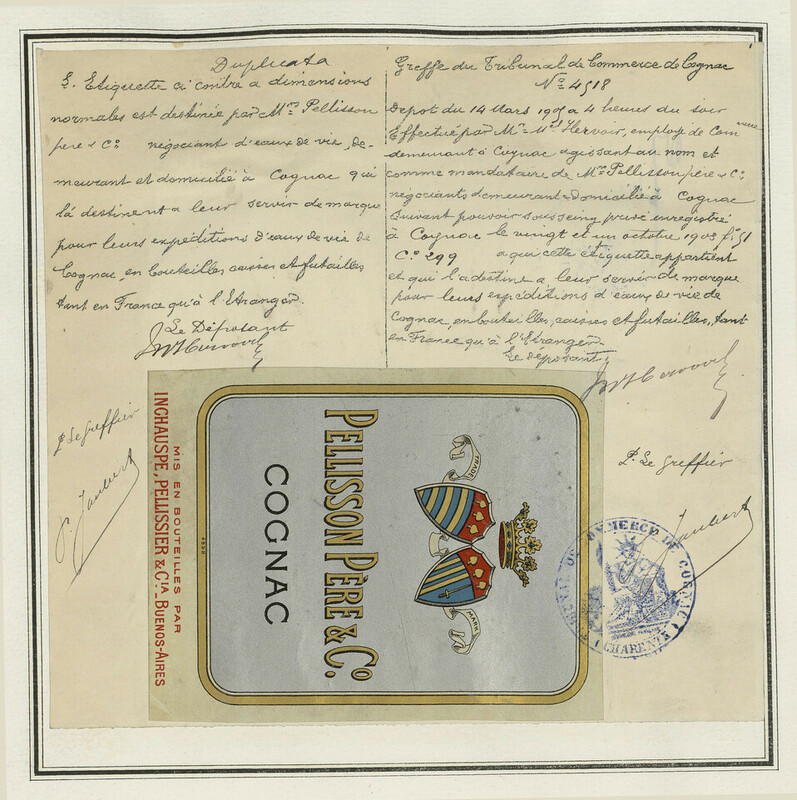 Duplicata
L. Etiquette ci contre a dimensions
normales est destinée par Mrs Pellisson
père & Co négociant d'eaux de vie, de-
meurant et domicilié à Cognac qui
la destinent a leur servir de marque
pour leurs expéditions d'eaux de vie de
Cognac, en bouteilles caisses et futailles
tant en France qu'à l'Etranger.
Le Déposant
P. Le Greffier
P. Jaubert
Greffe du Tribunal de Commerce de Cognac
No 4518
Depot du 14 Mars 190 a 4 heures du soir
Effectué par Mr Hervoir, employé de Commerce
demeurant à Cognac agissant au nom et
comme mandataire de Mrs Pellisson père & Co
négociants demeurant domicilié à Cognac
Suivant pouvoir sous seing privé enregistré
à Cognac le vingt et un octobre 1908 fo 51
Co 299 a qui cette étiquette appartient
et qui l'a destine a leur servir de marque
pour leurs expéditions d'eaux de vie de
Cognac, en bouteilles, caisses et futailles, tant
en France qu'à l'Etranger
Le déposant
P. Le Greffier
Jaubert
PELLISSON PÈRE & Co
COGNAC
TRADE
MARK
4898
MIS EN BOUTEILLES PAR
INCHAUSPE, PELLISSIER & CIA BUENOS-AIRES
TRIBUNAL DE COMMERCE DE COGNAC
(CHARENTE)